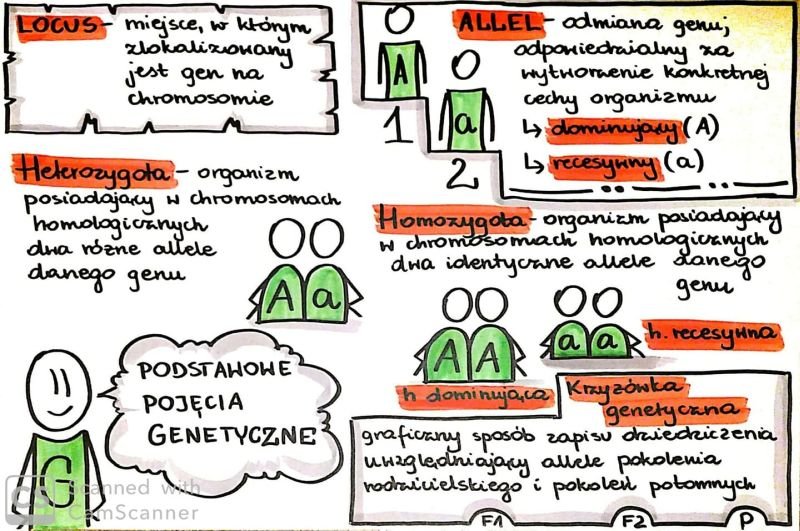 LOCUS - miejsce, w którym
zlokalizowany
jest gen na
chromosomie
A
1
a
2
ALLEL - odmiana genu;
odpowiedzialny za
wytworzenie konkretnej
cechy organizmu
↳ dominujący (A)
↳ recesywny (a)
Heterozygota - organizm
posiadający w chromosomach
homologicznych
dwa różne allele
danego genu
A a
Homozygota - organizm posiadający
w chromosomach homologicznych
dwa identyczne allele danego
genu
A A
h. dominująca
a a
h. recesywna
PODSTAWOWE
POJĘCIA
GENETYCZNE
G
Krzyżówka
genetyczna
graficzny sposób zapisu dziedziczenia
uwzględniający allele pokolenia
rodzicielskiego i pokoleń potomnych
F1 F2 P
CS Scanned with
CamScanner